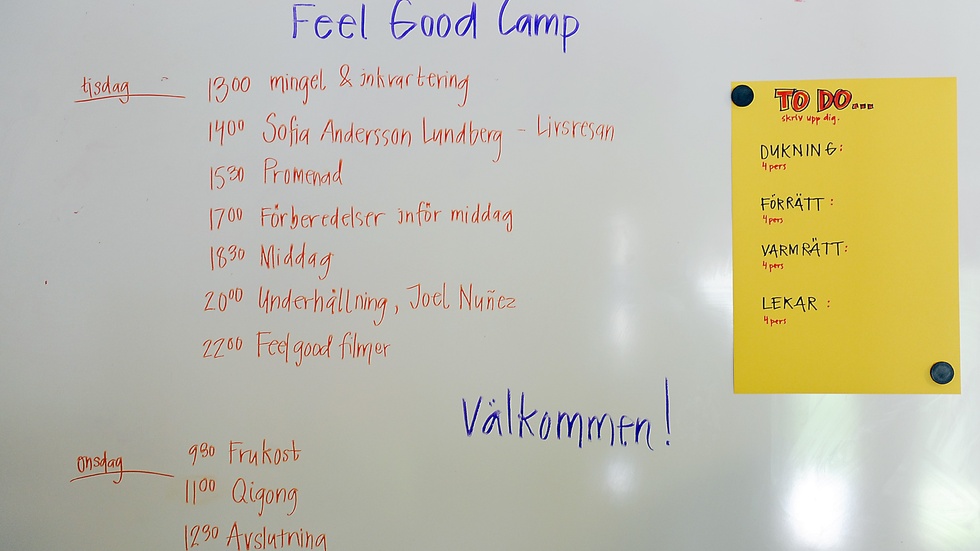 Feel Good Camp
tisdag
13 00 mingel & inkvartering
14 00 Sofia Andersson Lundberg - Livsresan
15 30 Promenad
17 00 Förberedelser inför middag
18 30 Middag
20 00 Underhållning, Joel Nuñez
22 00 Feelgood filmer
Välkommen!
onsdag
9 30 Frukost
11 00 Qigong
12 30 Avslutning
TO DO...
skriv upp dig.
DUKNING:
4 pers
FÖRRÄTT :
4 pers
VARMRÄTT:
4 pers
LEKAR :
4 pers